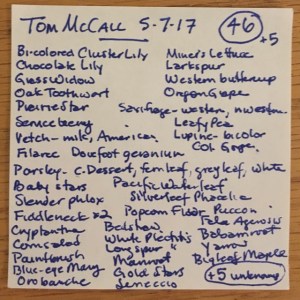 TOM McCALL 5-7-17 46 +5
Bi-colored Cluster Lily Miner's Lettuce
Chocolate Lily Larkspur
Grass Widow Western buttercup
Oak Toothwort Oregon Grape
Prairie Star Saxifrage - western, nwestern
Serviceberry Leafy Pea
Vetch - milk, American Lupine - bicolor
Filaree Dovefoot geranium Col Gorge
Parsley - c. Dessert, fernleaf, grey leaf, white
Baby stars Pacific Waterleaf
Slender phlox Silverleaf Phacelia
Fiddleneck x2 Popcorn Flower Puccoon
Cryptantha Bedstraw Fela Agerosis
Cornsalad White Plectritis Balsamroot
Paintbrush Long spur " Yarrow
Blue-eye Mary Manroot Bigleaf Maple
Orobanche Gold Stars +5 unknowns
Seneccio